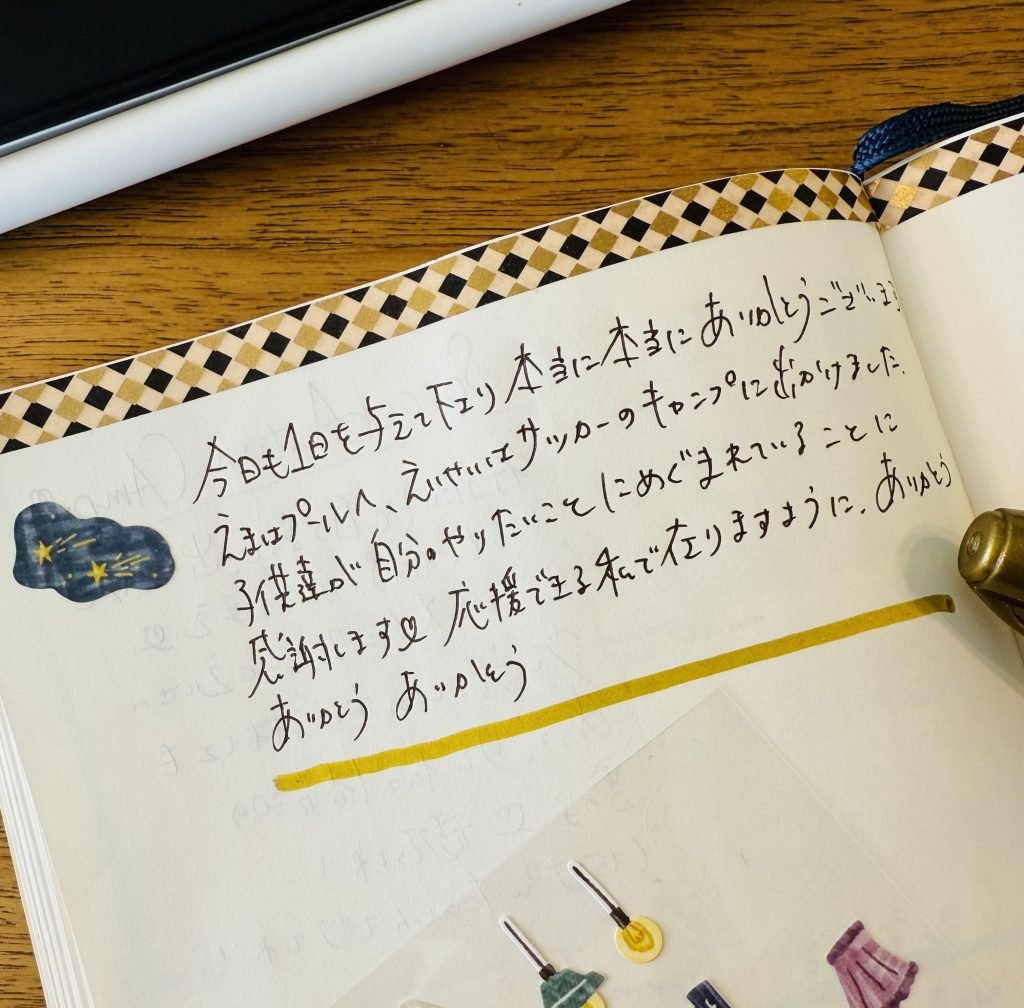 今日も1日を与えて下さり本当に本当にありがとうございます
えまはプールへ、えいせいはサッカーのキャンプに出かけました.
子供達が自分のやりたいことにめぐまれていることに
感謝します♡ 応援できる私で在りますように. ありがとう
ありがとう ありがとう